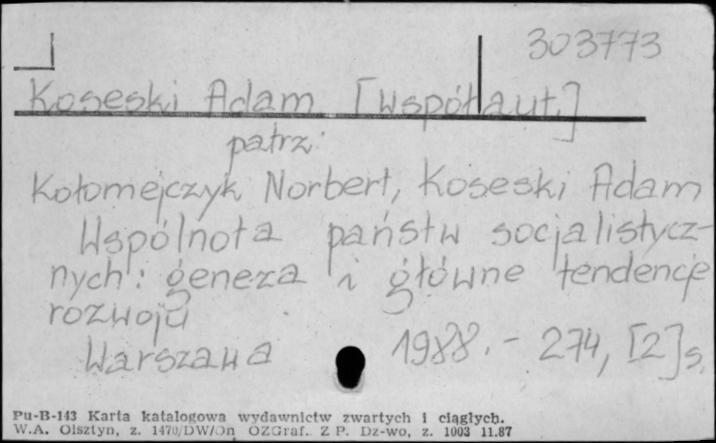 303773
Koseski Adam [współaut.]
patrz:
Kołomejczyk Norbert, Koseski Adam
Wspólnota państw socjalistycz-
nych: geneza i główne tendencje
rozwoju
Warszawa 1988.- 274, [2] s.
Pu-B-143 Karta katalogowa wydawnictw zwartych i ciągłych.
W.A. Olsztyn, z. 1470/DW/On OZGraf. Z P. Dz-wo, z. 1003 11.87